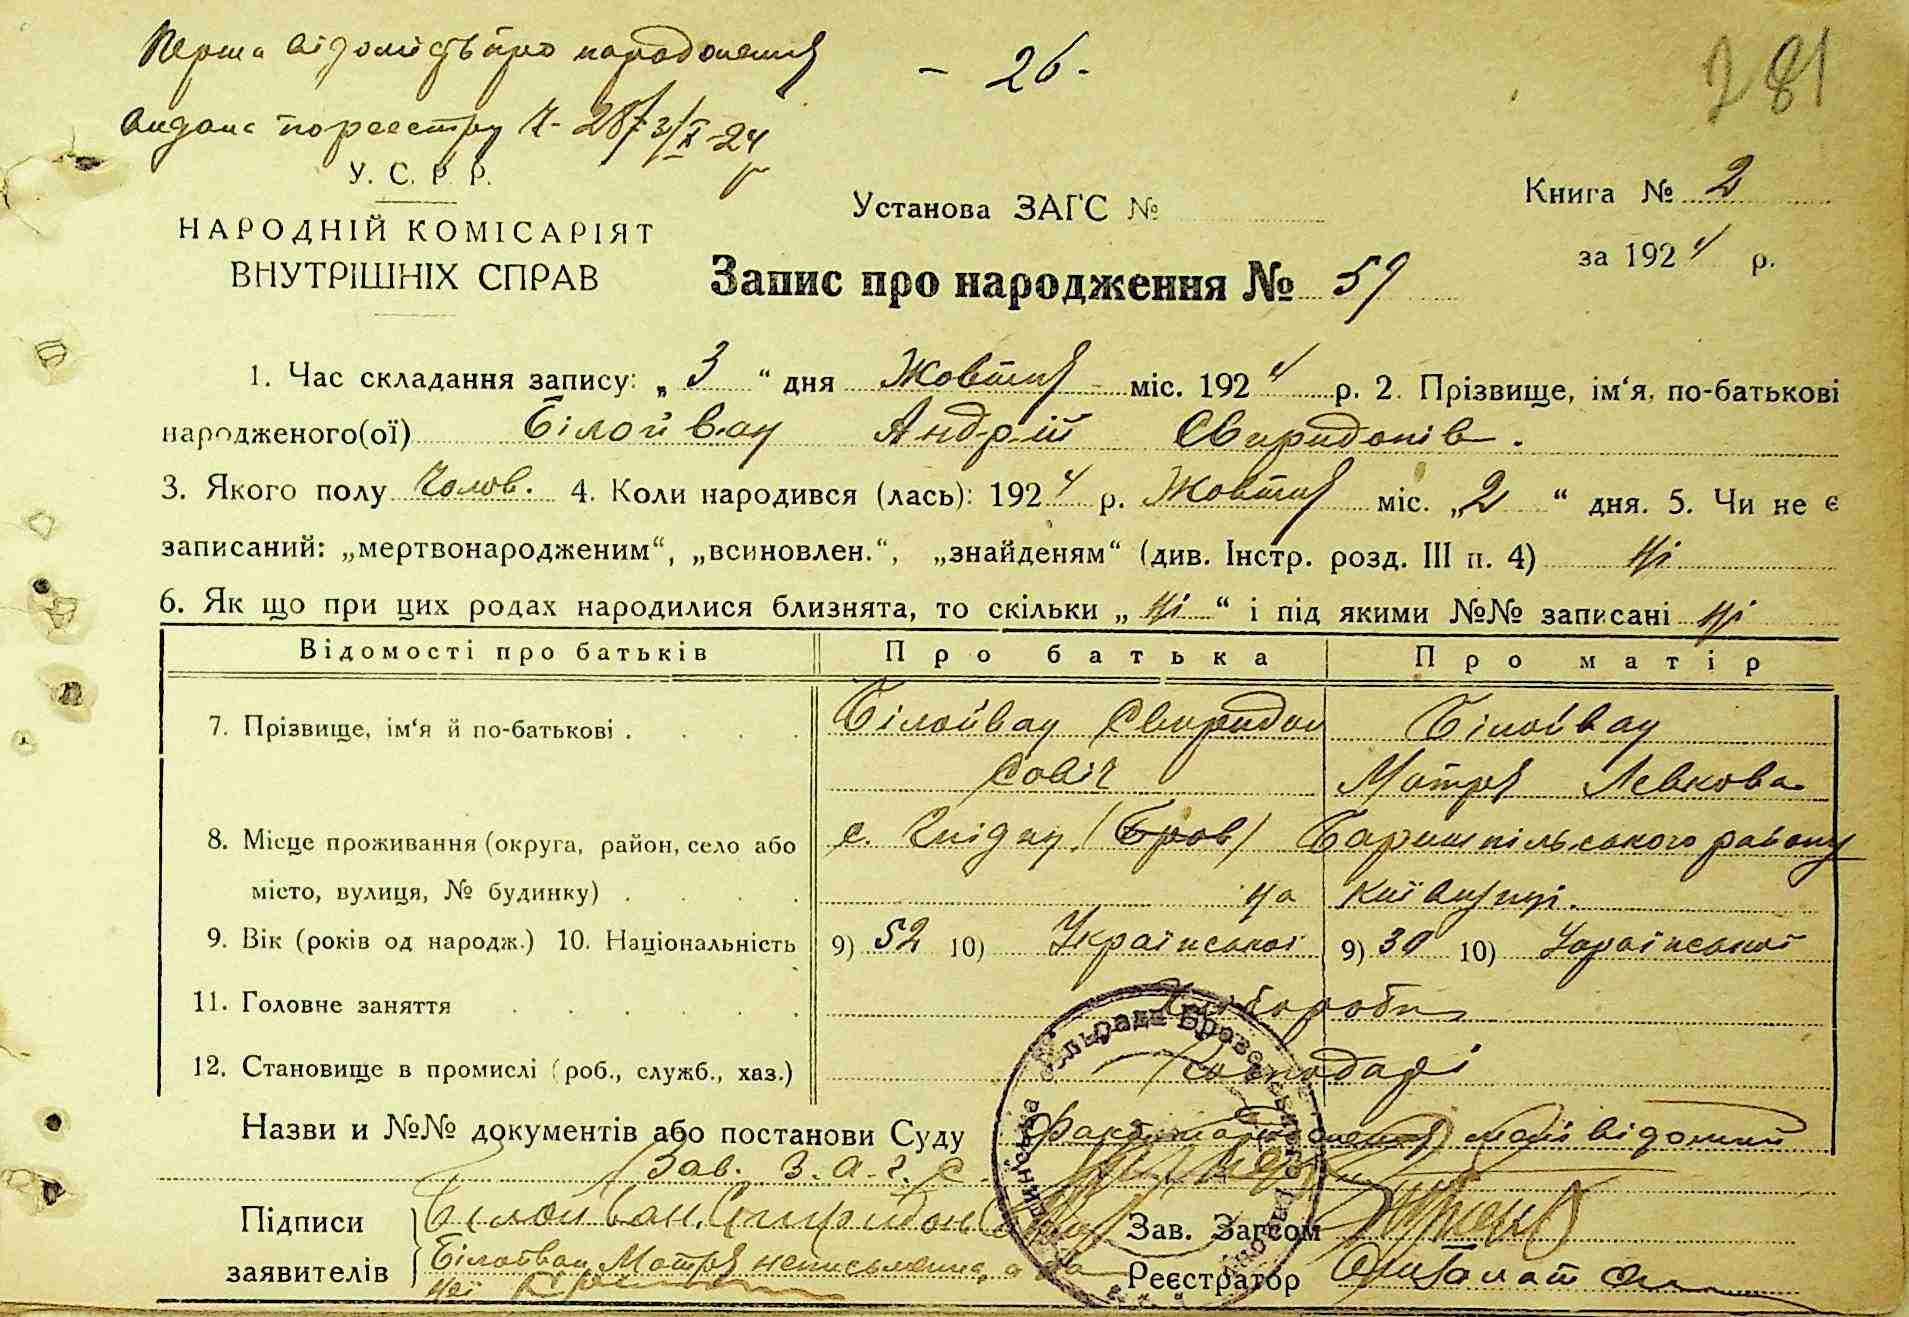 Перша відомість про народження
- 26 -
281
видана по реєстру Ч- 287 3/X-24
У. С. Р. Р.
НАРОДНІЙ КОМІСАРІЯТ
ВНУТРІШНІХ СПРАВ
Установа ЗАГС №
Книга № 2
за 1924 р.
Запис про народження № 59
1. Час складання запису: „ 3 “ дня Жовтня міс. 1924 р. 2. Прізвище, ім‘я, по-батькові
народженого(ої) Білойван Андрій Свиридонів.
3. Якого полу Чолов. 4. Коли народився (лась): 1924 р. Жовтня міс. „2 “ дня. 5. Чи не є
записаний: „мертвонародженим“, „всиновлен.“, „знайденям“ (див. Інстр. розд. III п. 4) Ні
6. Як що при цих родах народилися близнята, то скільки „ Ні “ і під якими №№ записані Ні
Відомості про батьків Про батька Про матір
7. Прізвище, ім‘я й по-батькові Білойван Свиридон Білойван
Совіч Мотря Левкова
8. Місце проживання (округа, район, село або с. Гнідин (Бров) Баришпільського району
місто, вулиця, № будинку) на Київщині.
9. Вік (років од народж.) 10. Національність 9) 52 10) Української 9) 30 10) Української
11. Головне заняття Хлібороби
12. Становище в промислі (роб., служб., хаз.) Господарі
Назви и №№ документів або постанови Суду факт народження мені відомий
Зав. З.А.Г.С.
Підписи Білойван Свиридон Зав. Загсом
заявителів Білойван Мотря неписьменна, а за
неї Реєстратор